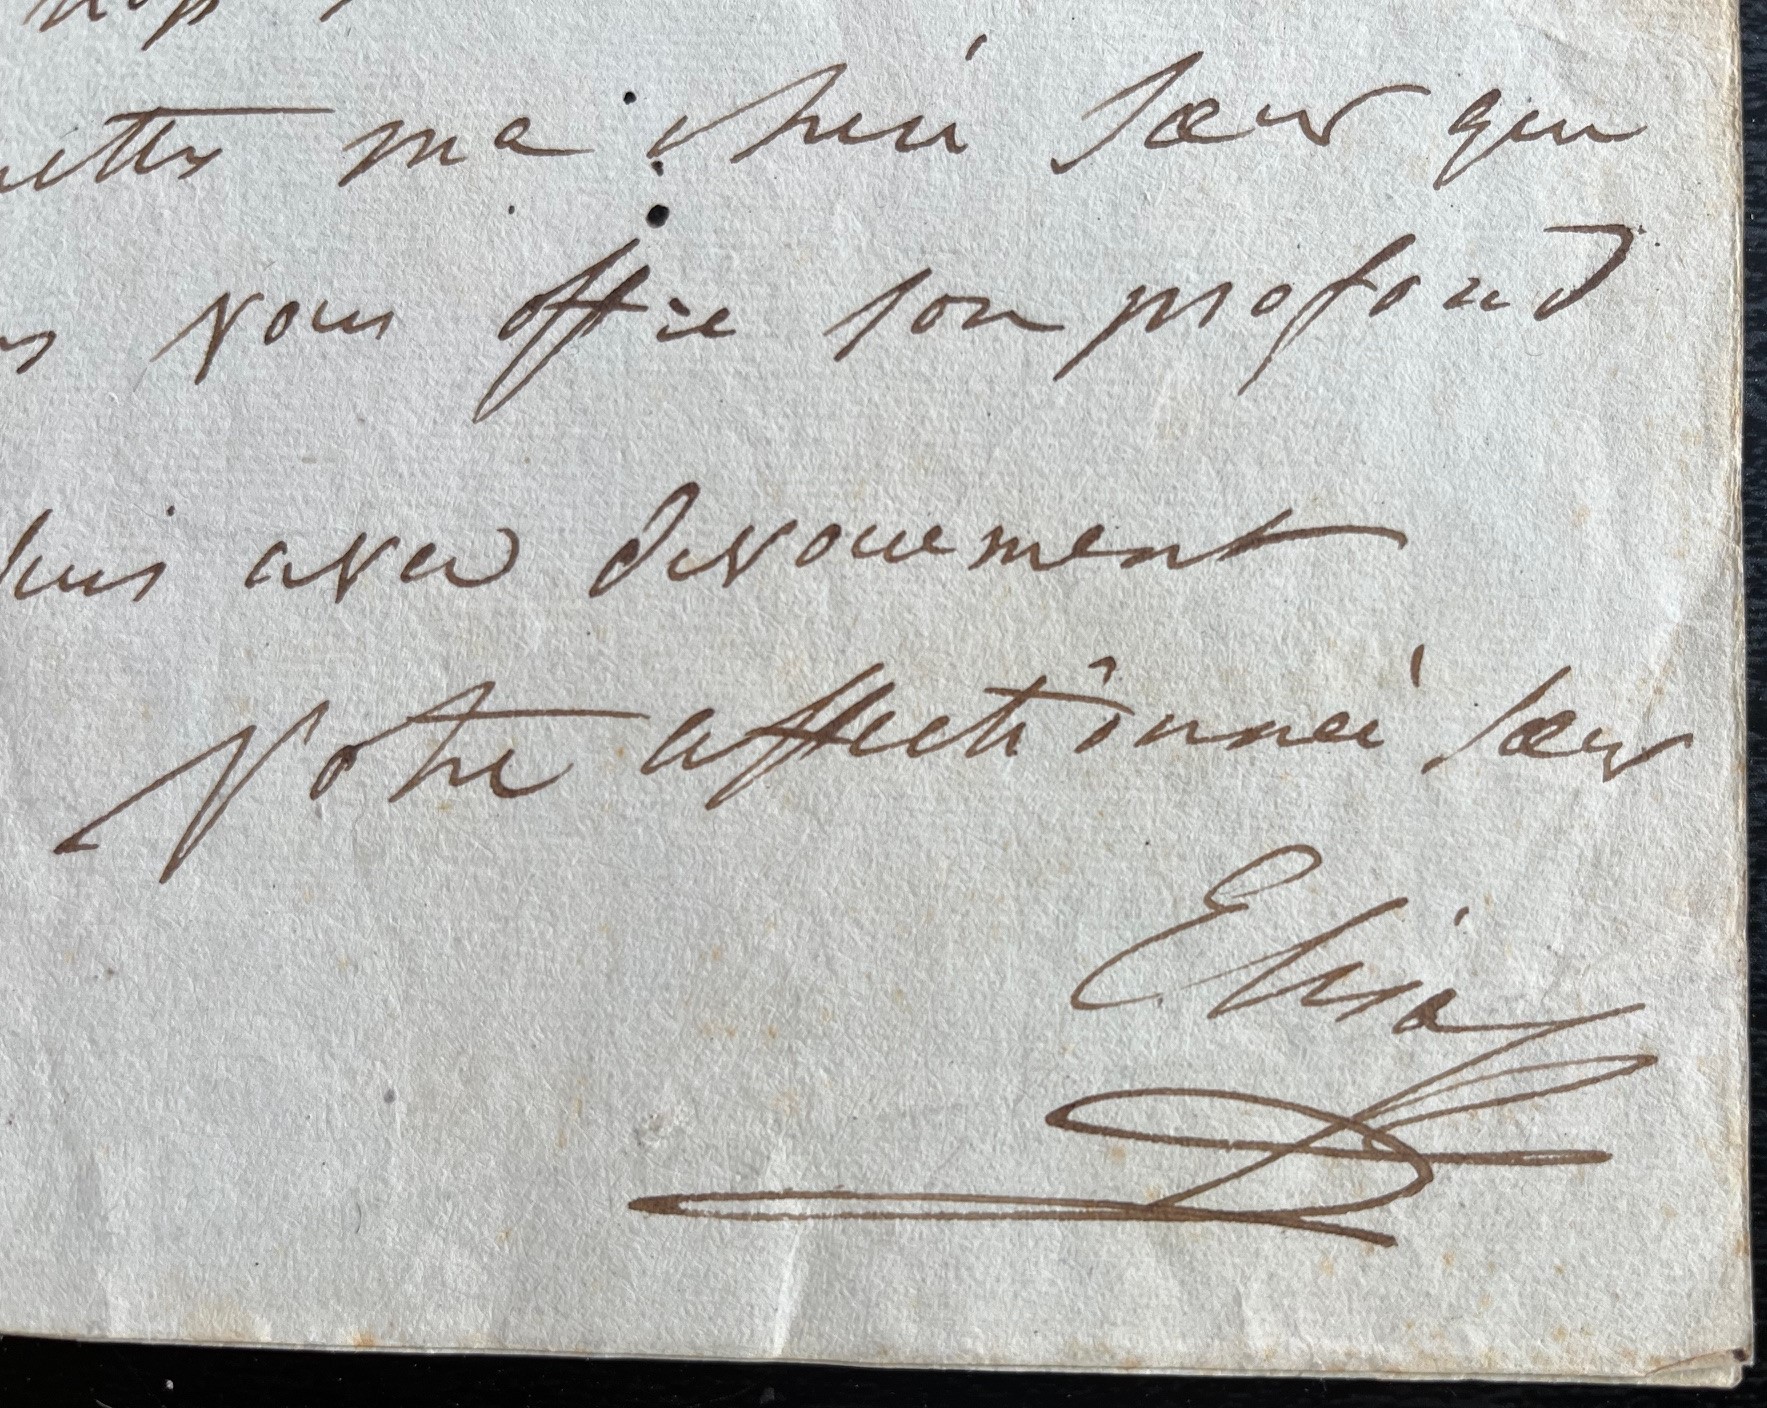 ma chere sœur que
vous offre son profond
suis avec devouement
Votre affectionneé sœur
Elisa